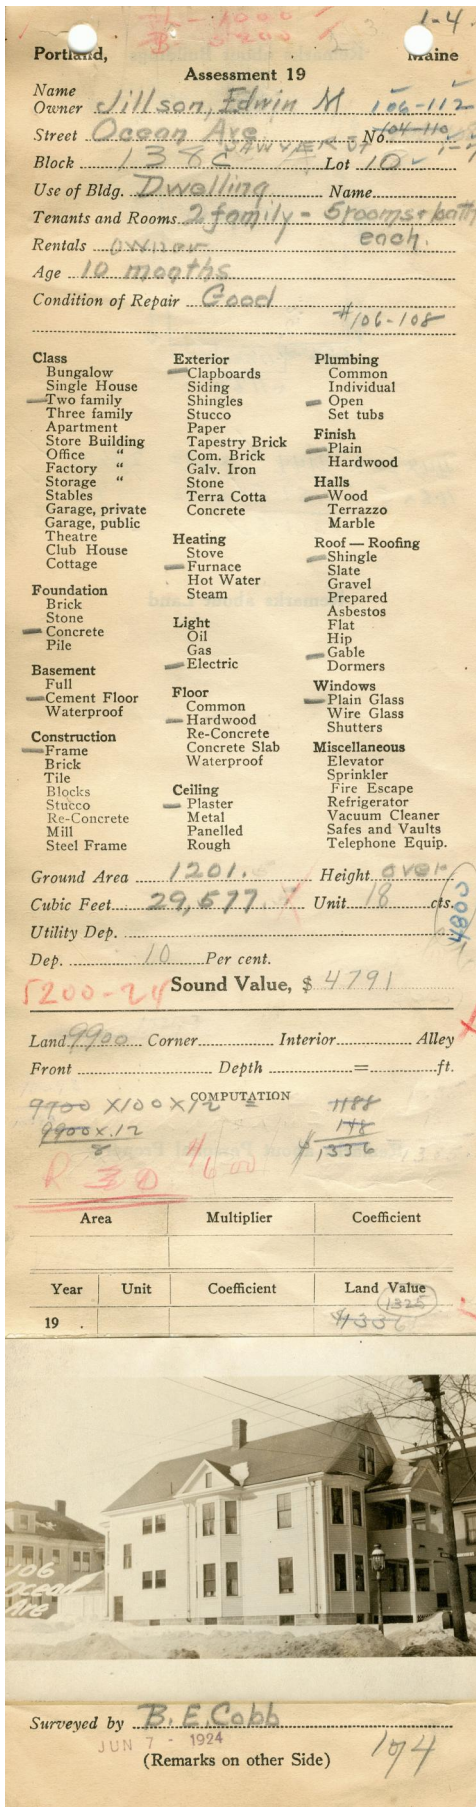 L - 1000
B. 5200
1-4.
Portland, Maine
Assessment 19
Name
Owner Jillson, Edwin M 106-112
Street Ocean Ave No. 104-110
SAWYER ST 1-7
Block 138C Lot 10
Use of Bldg. Dwelling Name
Tenants and Rooms. 2 family - 5 rooms + bath
each.
Rentals owner
Age 10 months
Condition of Repair Good
#106-108
Class
Bungalow
Single House
Two family
Three family
Apartment
Store Building
Office "
Factory "
Storage "
Stables
Garage, private
Garage, public
Theatre
Club House
Cottage
Foundation
Brick
Stone
Concrete
Pile
Basement
Full
Cement Floor
Waterproof
Construction
Frame
Brick
Tile
Blocks
Stucco
Re-Concrete
Mill
Steel Frame
Exterior
Clapboards
Siding
Shingles
Stucco
Paper
Tapestry Brick
Com. Brick
Galv. Iron
Stone
Terra Cotta
Concrete
Heating
Stove
Furnace
Hot Water
Steam
Light
Oil
Gas
Electric
Floor
Common
Hardwood
Re-Concrete
Concrete Slab
Waterproof
Ceiling
Plaster
Metal
Panelled
Rough
Plumbing
Common
Individual
Open
Set tubs
Finish
Plain
Hardwood
Halls
Wood
Terrazzo
Marble
Roof — Roofing
Shingle
Slate
Gravel
Prepared
Asbestos
Flat
Hip
Gable
Dormers
Windows
Plain Glass
Wire Glass
Shutters
Miscellaneous
Elevator
Sprinkler
Fire Escape
Refrigerator
Vacuum Cleaner
Safes and Vaults
Telephone Equip.
Ground Area 1201. Height over
Cubic Feet 29,577. Unit 18 cts.
4800
Utility Dep.
Dep. 10 Per cent.
5200-24 Sound Value, $ 4791
Land 9900 Corner Interior Alley
Front Depth = ft.
COMPUTATION
9900 X 100 X 12 = 1188
9900 x .12 148
8 $1336
R 30 1600
Area Multiplier Coefficient
Year Unit Coefficient Land Value
1325
19 . $1336
106
Ocean
Ave
Surveyed by B. E. Cobb
JUN 7 - 1924
(Remarks on other Side) 174